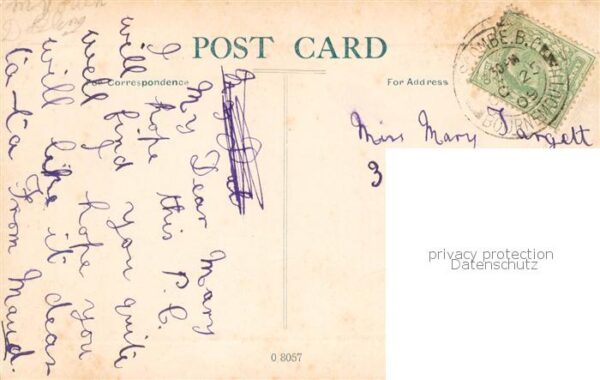 POST CARD
For Correspondence
For Address
My Dear Mary
I hope this P.C.
will find you quite
well hope you
will like it dear
ta-ta From Maud.
Miss Mary Targett
3
COMBE. B.O.
BOURNEMOUTH
privacy protection
Datenschutz
0 8057